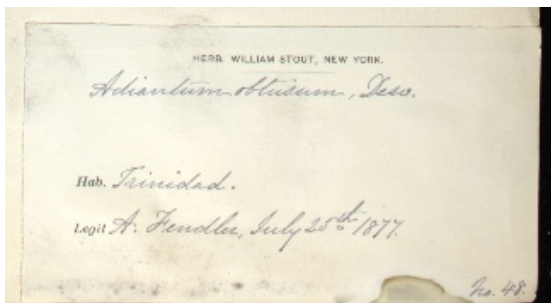 HERB. WILLIAM STOUT, NEW YORK.
Adiantum obtusum, Desv.
Hab. Trinidad.
Legit A. Fendler, July 25th 1877.
No. 48.